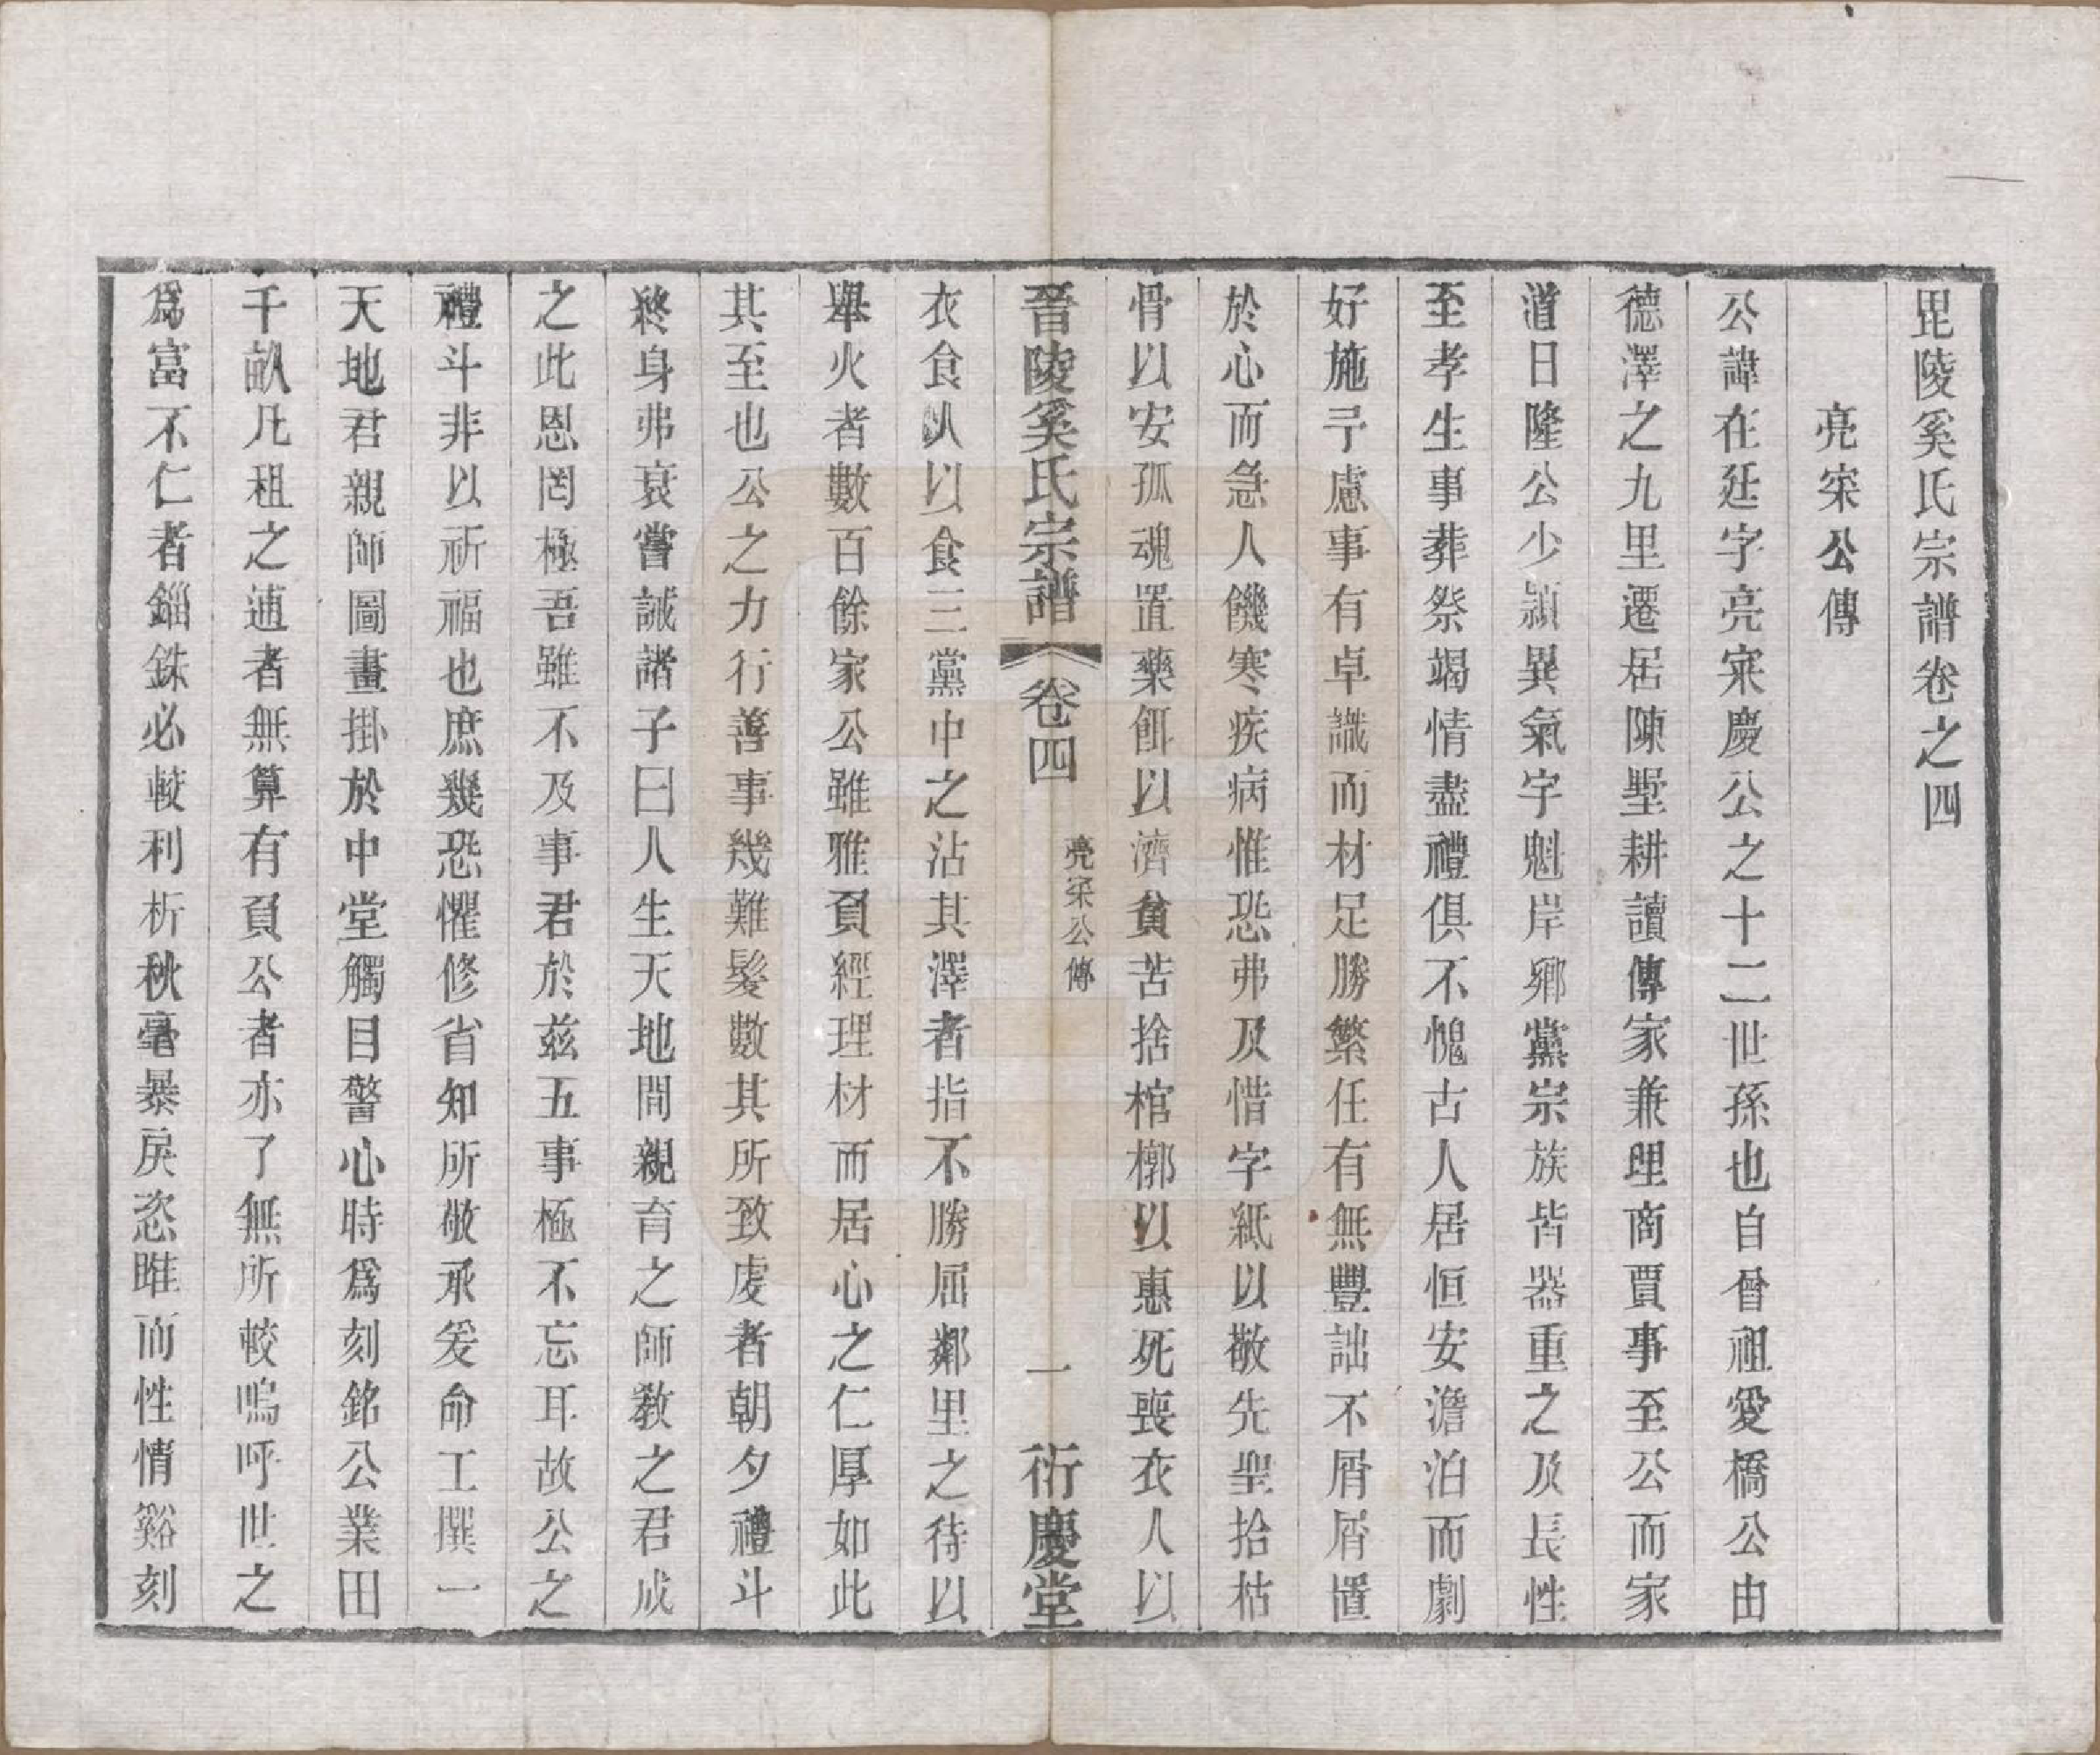 毘陵奚氏宗譜卷之四
亮寀公傳
公諱在廷字亮寀慶公之十二世孫也自曾祖愛橋公由
德澤之九里遷居陳墅耕讀傳家兼理商賈事至公而家
道日隆公少頴異氣宇魁岸鄉黨宗族皆器重之及長性
至孝生事葬祭竭情盡禮俱不愧古人居恒安澹泊而劇
好施予慮事有卓識而材足勝繁任有無豐詘不屑屑置
於心而急人饑寒疾病惟恐弗及惜字紙以敬先聖拾枯
骨以安孤魂置藥餌以濟貧苦捨棺槨以惠死喪衣人以
晉陵奚氏宗譜 卷四 亮寀公傳 一 衍慶堂
衣食人以食三黨中之沾其澤者指不勝屈鄰里之待以
舉火者數百餘家公雖雅負經理材而居心之仁厚如此
其至也公之力行善事幾難髮數其所致虔者朝夕禮斗
終身弗衰嘗誡諸子曰人生天地間親育之師教之君成
之此恩罔極吾雖不及事君於茲五事極不忘耳故公之
禮斗非以祈福也庶幾恐懼修省知所敬承爰命工撰一
天地君親師圖畫掛於中堂觸目警心時爲刻銘公業田
千畝凡租之逋者無算有負公者亦了無所較嗚呼世之
爲富不仁者錙銖必較利析秋毫暴戾恣睢而性情谿刻